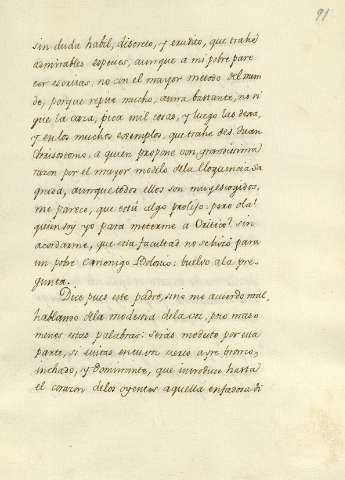 91
sin duda habil, discreto, y erudito, que trahe
admirables especies, aunque a mi pobre pare
cer escritas, no con el mayor metodo del mun
do; porque repite mucho, aura bastante, no si
gue la caza, pica mil cosas, y luego las dexa,
y en los muchos exemplos, que trahe de S. Juan
Chrisostomo, a quien propone con grandissima
razon por el mayor modelo dela Eloquencia Sa
grada, aunque todos ellos son muy escogidos,
me parece, que está algo prolijo: pero ola!
quien soy yo para meterme a Critico? sin
acordarme, que esta facultad no se hizo para
un pobre Canonigo : buelvo ala pre
gunta.
Dice pues este padre, sino me acuerdo mal,
hablando dela modestia dela voz, poco mas o
menos estas palabras: serás modesto por esta
parte, si evitas en tu voz cierto ayre bronco,
inchado, y dominante, que introduce hasta
el corazon delos oyentes aquella enfadosa di